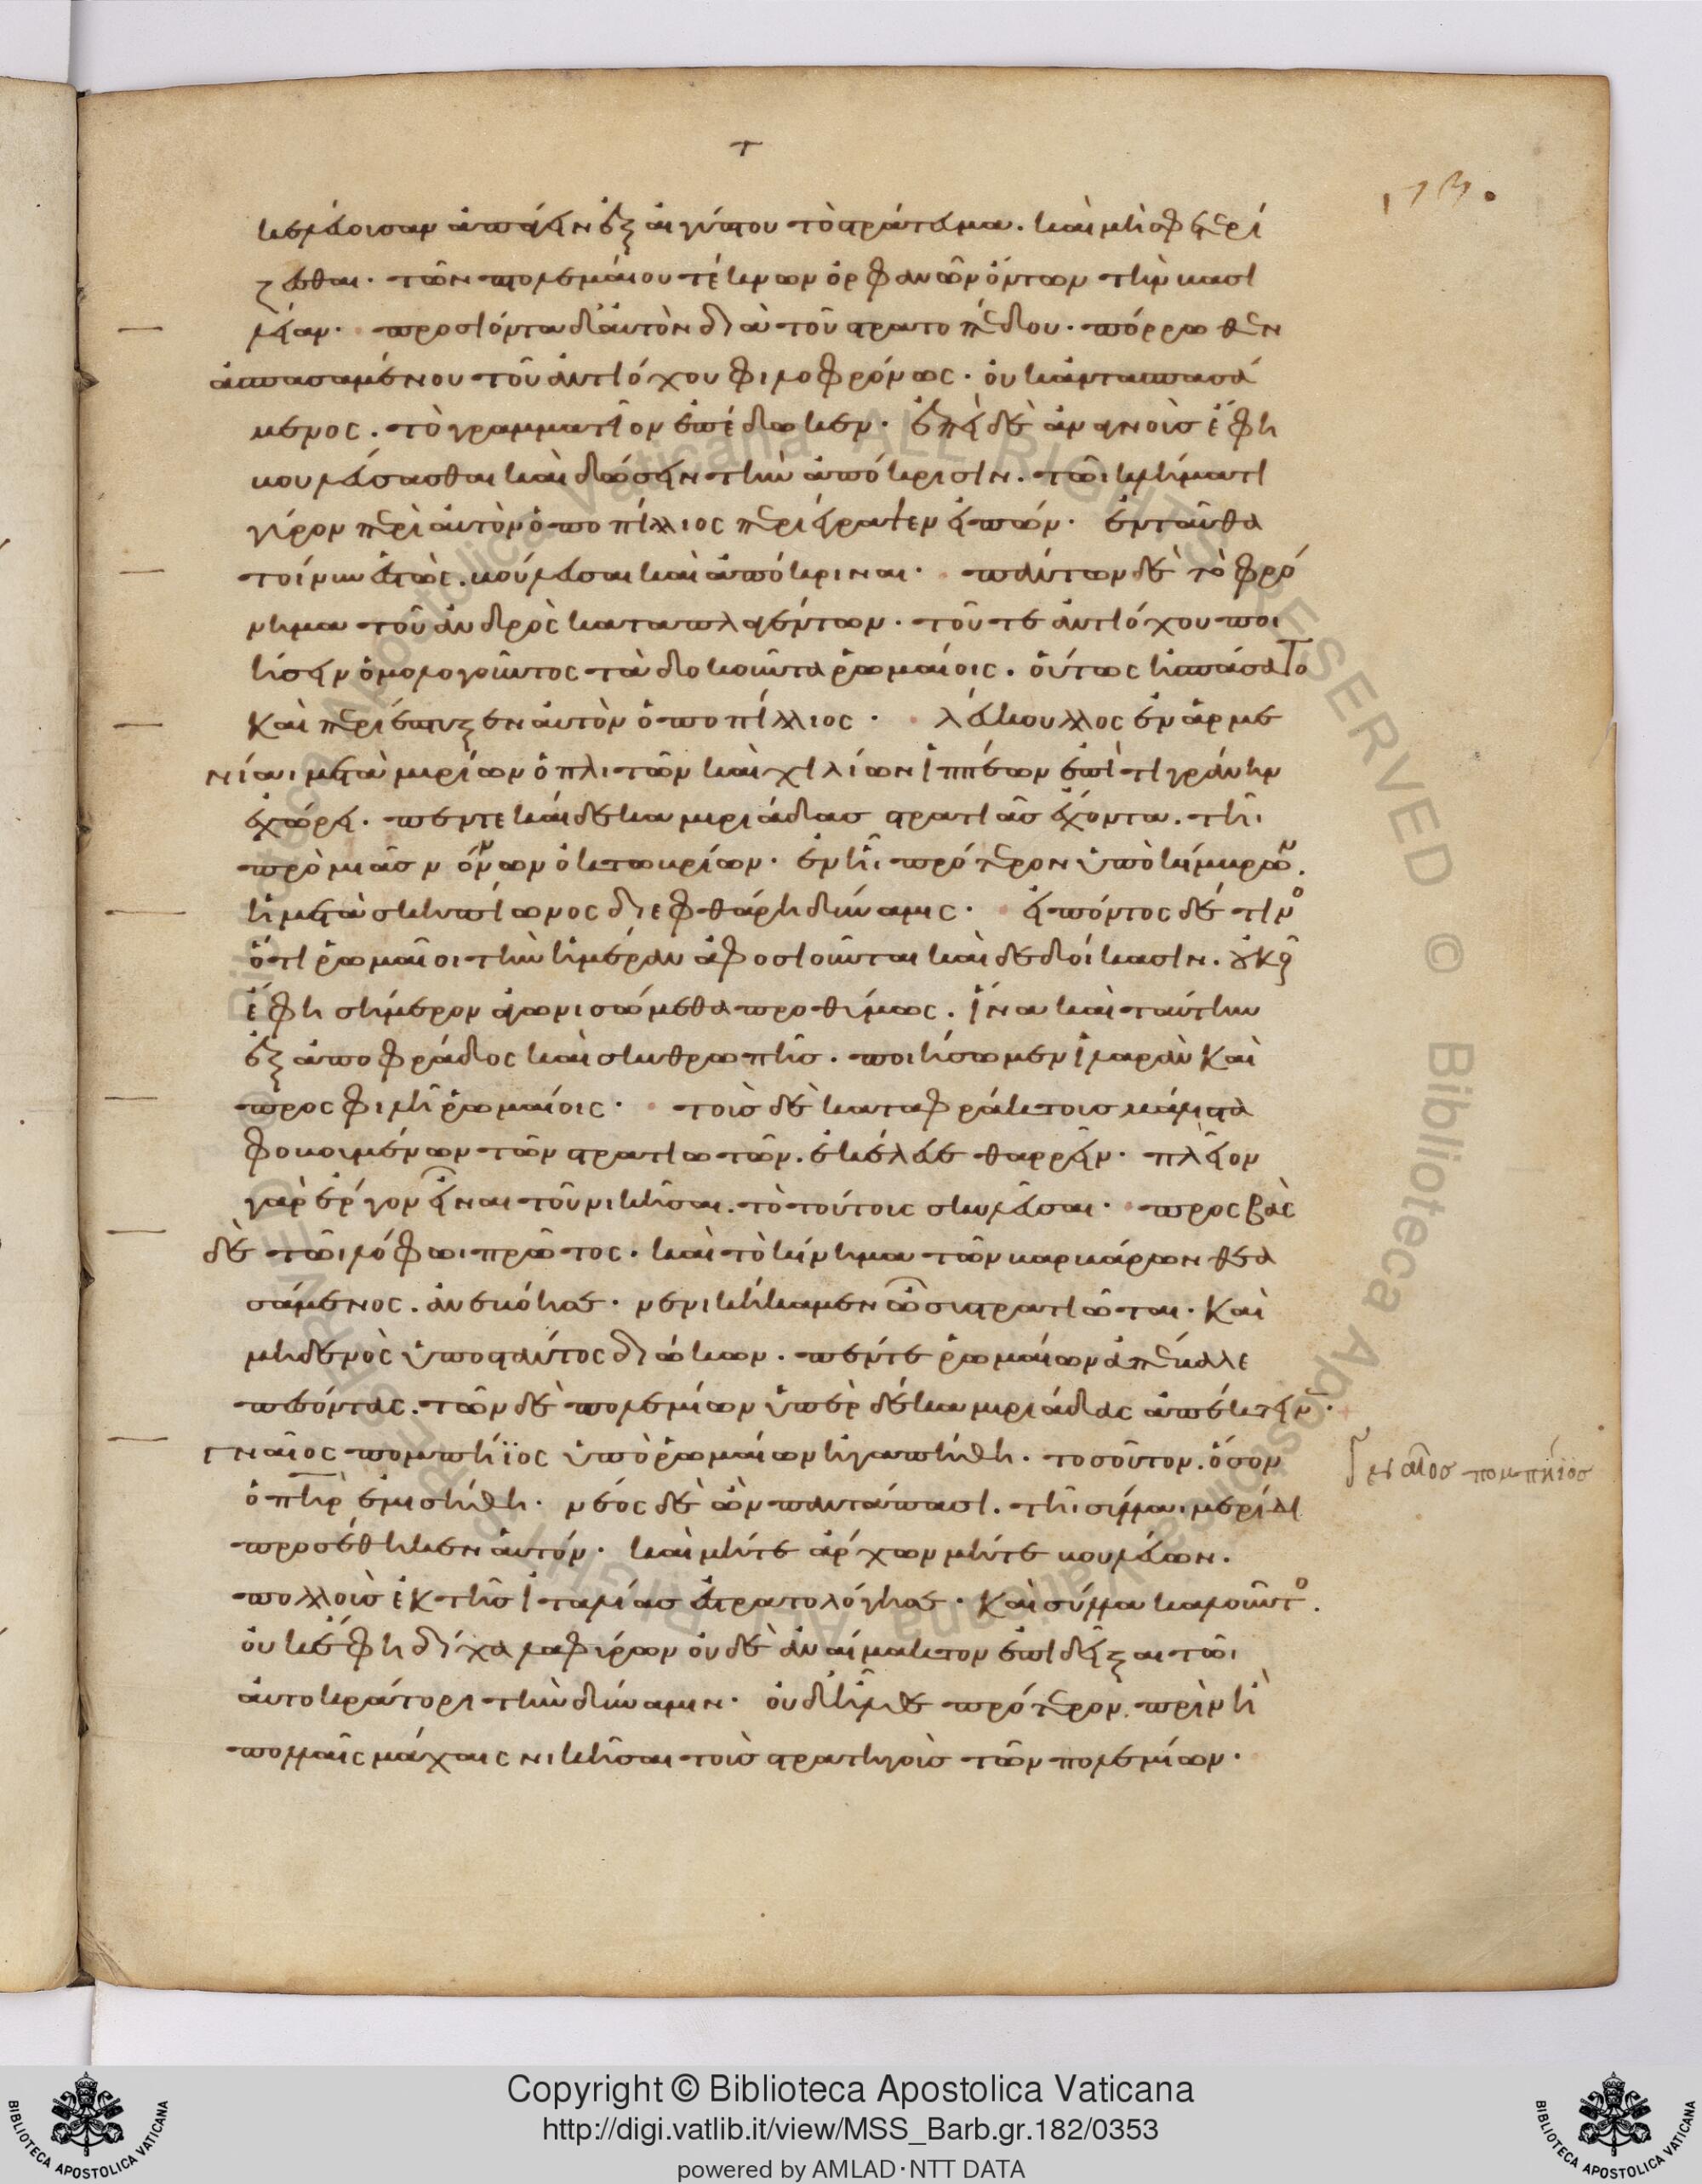 173.
κελεύουσαν ἀπάγειν ἐξ αἰγύπτου τὸ στράτευμα. καὶ μὴ σφετερί
ζεσθαι. τῶν πτολεμαίου τέκνων ὀρφανῶν ὄντων τὴν βασι
λείαν. προσιόντα δ' αὐτὸν διὰ τοῦ στρατοπέδου. πόρρωθεν
ἀσπασαμένου τοῦ ἀντιόχου φιλοφρόνως. οὐκ ἀντασπασά
μενος. τὸ γραμματεῖον ἐπέδωκεν. ἐπεὶ δὲ ἀναγνοὺς ἔφη
βουλεύσασθαι καὶ δώσειν τὴν ἀπόκρισιν. τῶι κλήματι
γύρον περὶ αὐτὸν ὁ ποπίλλιος περιέγραψεν εἰπών. ἐνταῦθα
τοίνυν ἑστὼς. βούλευσαι καὶ ἀπόκριναι. πάντων δὲ τὸ φρό
νημα τοῦ ἀνδρὸς καταπλαγέντων. τοῦ τε ἀντιόχου ποι
ήσειν ὁμολογοῦντος τὰ δοκοῦντα ῥωμαίοις. οὕτως ἠσπάσατο
καὶ περιέπτυξεν αὐτὸν ὁ ποπίλλιος. λεύκουλλος ἐν ἀρμε
νίαι μετὰ μυρίων ὁπλιτῶν καὶ χιλίων ἱππέων ἐπὶ τιγράνην
ἐχώρει. πεντεκαίδεκα μυριάδας στρατιᾶς ἔχοντα. τῆι
πρὸ μιᾶς νόννων ὀκτωβρίων. ἐν ἧι πρότερον ὑπὸ κίμβρων.
ἡ μετὰ σκηπίωνος διεφθάρη δύναμις. εἰπόντος δέ τινος
ὅτι ῥωμαῖοι τὴν ἡμέραν ἀφοσιοῦνται καὶ δεδοίκασιν. οὐκοῦν
ἔφη σήμερον ἀγωνισώμεθα προθύμως. ἵνα καὶ ταύτην
ἐξ ἀποφράδος καὶ σκυθρωπῆς. ποιήσωμεν ἱλαρὰν καὶ
προσφιλῆ ῥωμαίοις. τοὺς δὲ καταφράκτους μάλιστα
φοβουμένων τῶν στρατιωτῶν. ἐκέλευε θαρρεῖν. πλεῖον
γὰρ ἔργον εἶναι τοῦ νικῆσαι. τὸ τούτους σκυλεῦσαι. προσβὰς
δὲ τῶι λόφωι πρῶτος. καὶ τὸ κίνημα τῶν βαρβάρων θεα
σάμενος. ἀνεβόησε. νενικήκαμεν ὦ συστρατιῶται. καὶ
μηδενὸς ὑποστάντος διώκων. πέντε ῥωμαίων ἀπέβαλε
πεσόντας. τῶν δὲ πολεμίων ὑπὲρ δέκα μυριάδας ἀπέκτεινεν.
γναῖος πομπήϊος ὑπὸ ῥωμαίων ἠγαπήθη. τοσοῦτον. ὅσον
ὁ πὴρ ἐμισήθη. νέος δὲ ὢν παντάπασι. τῆι σύλλαι μερίδι
προσέθηκεν αὑτόν. καὶ μήτε ἄρχων μήτε βουλεύων.
πολλοὺς ἐκ τῆς ἰταλίας ἐστρατολόγησε. καὶ σύλλα καλοῦντος.
οὐκ ἔφη δίχα λαφύρων οὐδὲ ἀναίμακτον ἐπιδεῖξαι τῶι
αὐτοκράτορι τὴν δύναμιν. οὐδ' ἧκε πρότερον. πρὶν ἢ
πολλαῖς μάχαις νικῆσαι τοὺς στρατηγοὺς τῶν πολεμίων.
γναῖος πομπήϊος
Copyright © Biblioteca Apostolica Vaticana
http://digi.vatlib.it/view/MSS_Barb.gr.182/0353
powered by AMLAD·NTT DATA
BIBLIOTECA APOSTOLICA VATICANA
BIBLIOTECA APOSTOLICA VATICANA